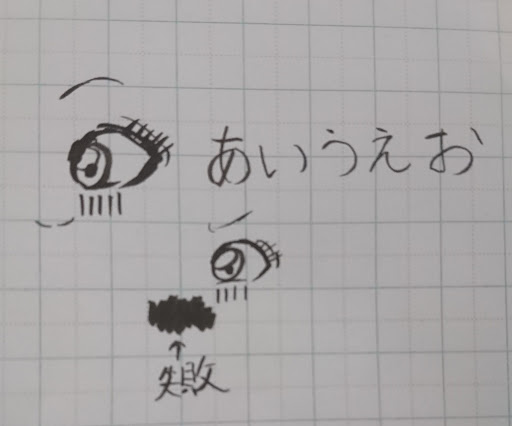 あいうえお
↑
失敗